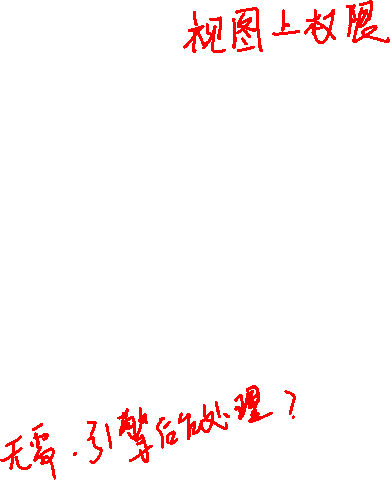 视图上权限
无需.引擎后故处理?